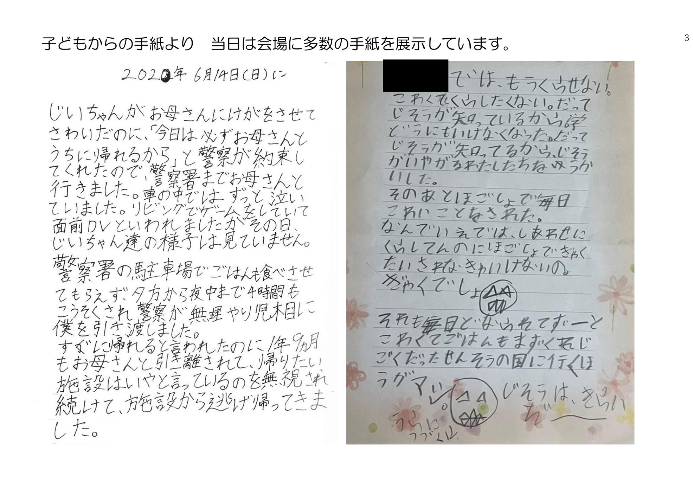 子どもからの手紙より　当日は会場に多数の手紙を展示しています。
3
2020年6月14日(日)に
じいちゃんがお母さんにけがをさせて
さわいだのに、「今日は必ずお母さんと
うちに帰れるから」と警察が約束し
てくれたので警察署までお母さんと
行きました。車の中では、ずっと泣い
ていました。リビングでゲームをしていて
面前DVといわれましたがその日、
じいちゃん達の様子は見ていません。
警察署の駐車場でごはんも食べさせ
てもらえず、夕方から夜中まで4時間も
こうそくされ警察が無理やり児相に
僕を引き渡しました。
すぐに帰れると言われたのに1年9カ月
もお母さんと引き離されて、帰りたい
施設はいやと言っているのを無視され
続けて、施設から逃げ帰ってきま
した。
では、もうくらせない。
こわくてくらしたくない。だって
じそうが知っているから学
どうにもいけなくなった。だって
じそうが知ってるから、じそう
がいやがるわたしたちを
いした。
そのあとほごしょで毎日
こわいことをされた。
なんでいえでは、しあわせに
くらしてんのにほごしょでぎゃく
たいされなきゃいけないの。
ぎゃくでしょ
それも毎日どなられてずーと
こわくてごはんもまずくてじ
ごくだったせんそうの国に行くほ
うがマシ。
じそうは、きらい
だ
うらに
つづく